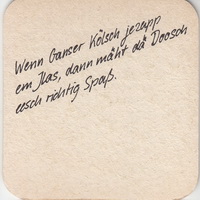 Wenn Ganser Kölsch jezapp
em Jlas, dann mäht dä Doosch
eesch richtig Spaß.